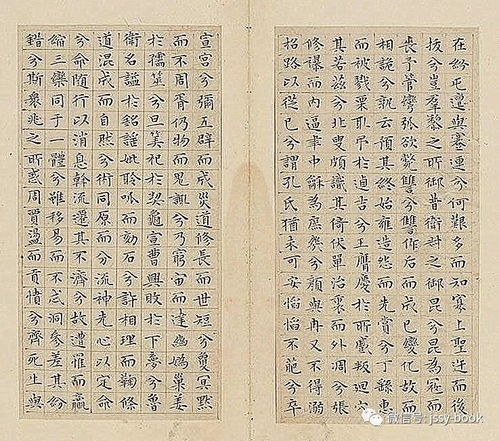 在紛屯邅與蹇連兮何艱多而知寡上聖迕而後
拔兮豈羣黎之所御昔衛叔之御昆兮昆為寇而
喪予管彎弧欲斃讐兮讐作后而成己變化故而
相詭兮孰云預其終始雍造怨而先賞兮丁繇惠
而被戮栗取弔於逌吉兮王膺慶於所慼叛迴穴
其若茲兮北叟頗識其倚伏單治裏而外凋兮張
修襮而內逼聿中龢為庶幾兮顏與冉又不得溺
招路以從己兮謂孔氏猶未可安慆慆不萉兮卒
宣宮兮彌五辟而成災道修長而世短兮夐冥默
而不周胥仍物而鬼諏兮乃窮宙而達幽媯巢姜
於孺筮兮旦筭祀於契龜宣曹興敗於下夢兮魯
衛名謚於銘謠妣聆呱而劾石兮許相理而鞠條
道混成而自然兮術同原而分流神先心以定命
兮命隨行以消息斡流遷其不濟兮故遭罹而嬴
縮三欒同于一體兮雖移易而不忒洞參差其紛
錯兮斯衆兆之所惑周賈盪而貢憤兮齊死生與
微信号: jssy-book